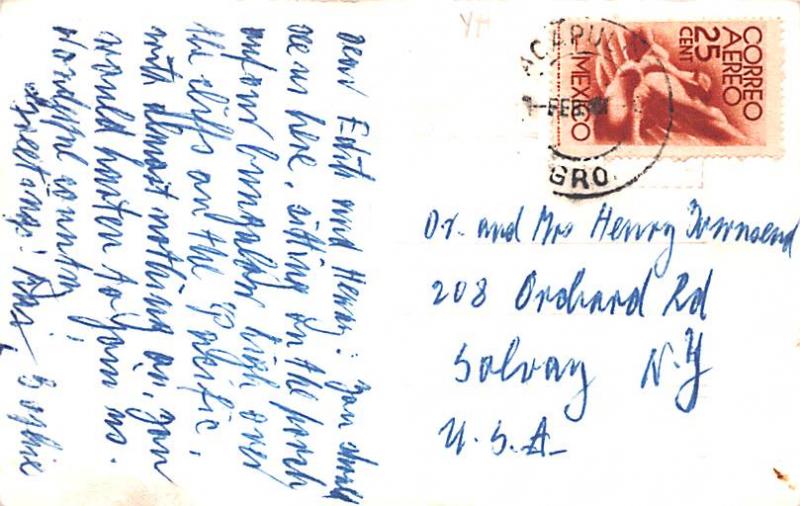 Dear Edith and Henry: You should
see us here, sitting on the porch
of our bungalow high over
the cliffs on the Pacific,
with almost nothing on, you
would hasten to join us.
Wonderful country
Greetings! Sophie
YA
ACAPULCO
FEB
GRO.
CORREO
AEREO
25
CENT
MEXICO
Dr. and Mrs Henry Townsend
208 Orchard Rd
Solvay N.Y
U.S.A-